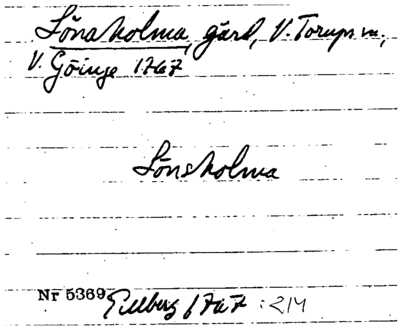 Lönsholma, gård, V. Torups sn,
V. Göinge 1767
Lönsholma
Nr 5369 Gillberg 1767 :214